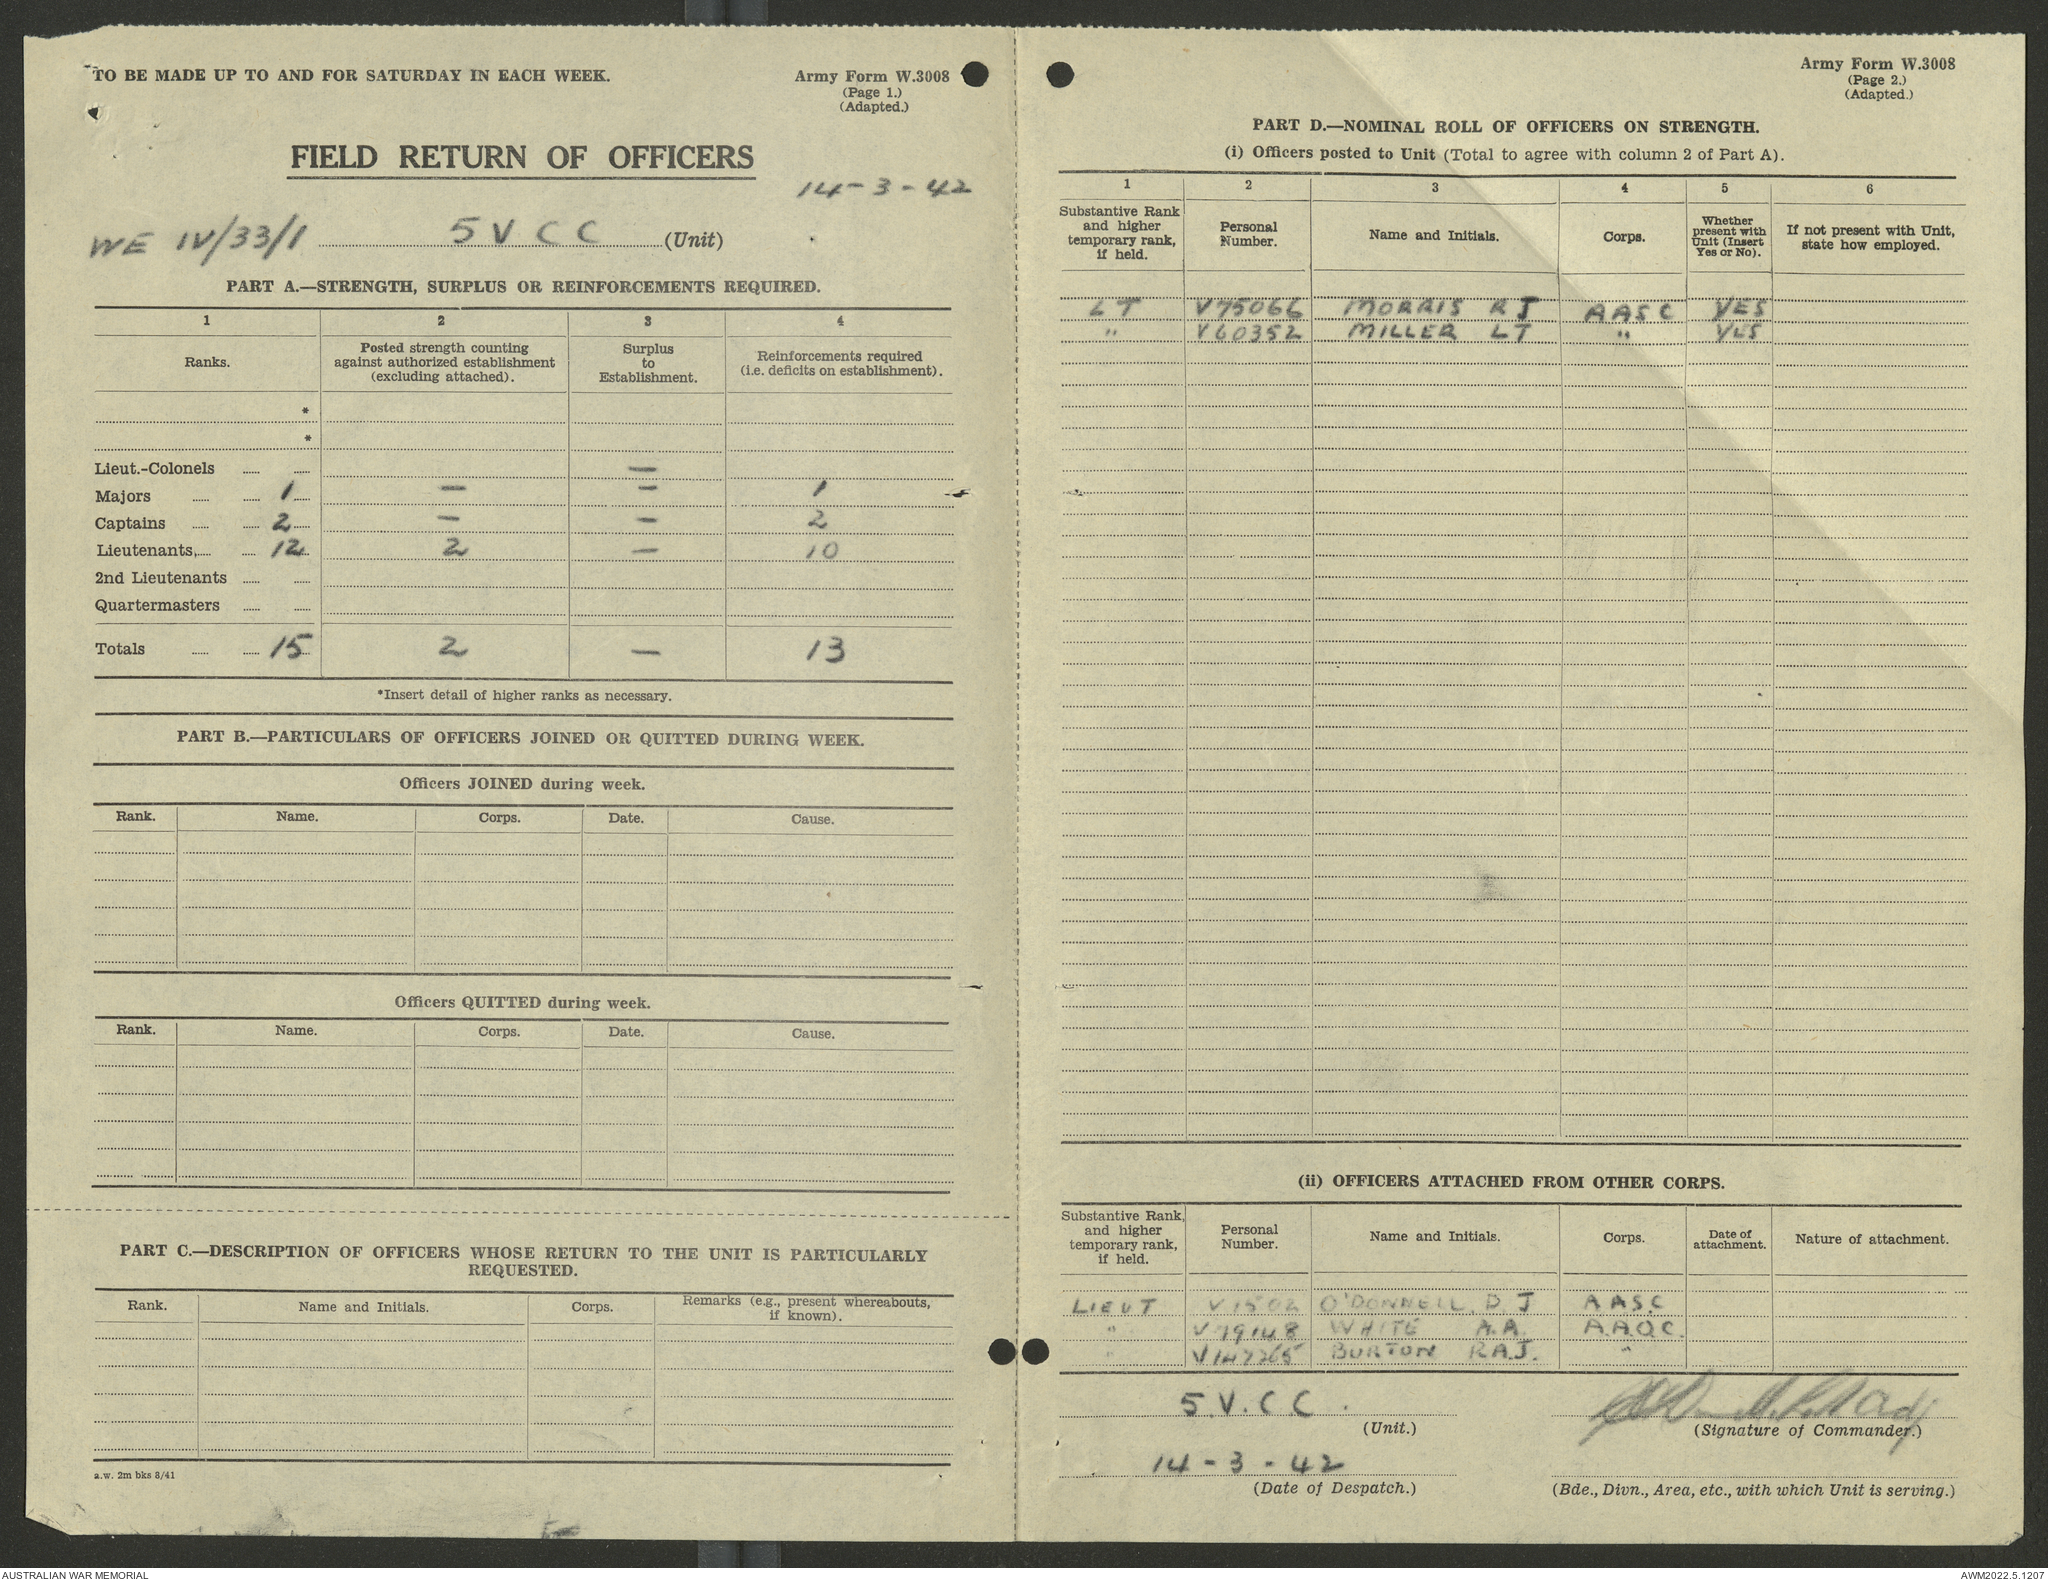 TO BE MADE UP TO AND FOR SATURDAY IN EACH WEEK.
Army Form W.3008
(Page 1.)
(Adapted.)
FIELD RETURN OF OFFICERS
14-3-42
WE IV/33/1 5 V C C (Unit)
PART A.—STRENGTH, SURPLUS OR REINFORCEMENTS REQUIRED.
1 2 3 4
Ranks. Posted strength counting against authorized establishment (excluding attached). Surplus to Establishment. Reinforcements required (i.e. deficits on establishment).
*
*
Lieut.-Colonels —
Majors 1 — — 1
Captains 2 — — 2
Lieutenants, 12 2 — 10
2nd Lieutenants
Quartermasters
Totals 15 2 — 13
*Insert detail of higher ranks as necessary.
PART B.—PARTICULARS OF OFFICERS JOINED OR QUITTED DURING WEEK.
Officers JOINED during week.
Rank. Name. Corps. Date. Cause.
Officers QUITTED during week.
Rank. Name. Corps. Date. Cause.
PART C.—DESCRIPTION OF OFFICERS WHOSE RETURN TO THE UNIT IS PARTICULARLY
REQUESTED.
Rank. Name and Initials. Corps. Remarks (e.g., present whereabouts, if known).
a.w. 2m bks 8/41
Army Form W.3008
(Page 2.)
(Adapted.)
PART D.—NOMINAL ROLL OF OFFICERS ON STRENGTH.
(i) Officers posted to Unit (Total to agree with column 2 of Part A).
1 2 3 4 5 6
Substantive Rank and higher temporary rank, if held. Personal Number. Name and Initials. Corps. Whether present with Unit (Insert Yes or No). If not present with Unit, state how employed.
LT V75066 MORRIS R J AASC YES
" V60352 MILLER LT " YES
(ii) OFFICERS ATTACHED FROM OTHER CORPS.
Substantive Rank, and higher temporary rank, if held. Personal Number. Name and Initials. Corps. Date of attachment. Nature of attachment.
LIEUT V1502 O'DONNELL. D J AASC
" V79148 WHITE A.A. A.A.O.C.
" V147265 BURTON R.A.J. "
5.V.CC.
(Unit.)
(Signature of Commander.)
14-3-42
(Date of Despatch.)
(Bde., Divn., Area, etc., with which Unit is serving.)
AUSTRALIAN WAR MEMORIAL
AWM2022.5.1207